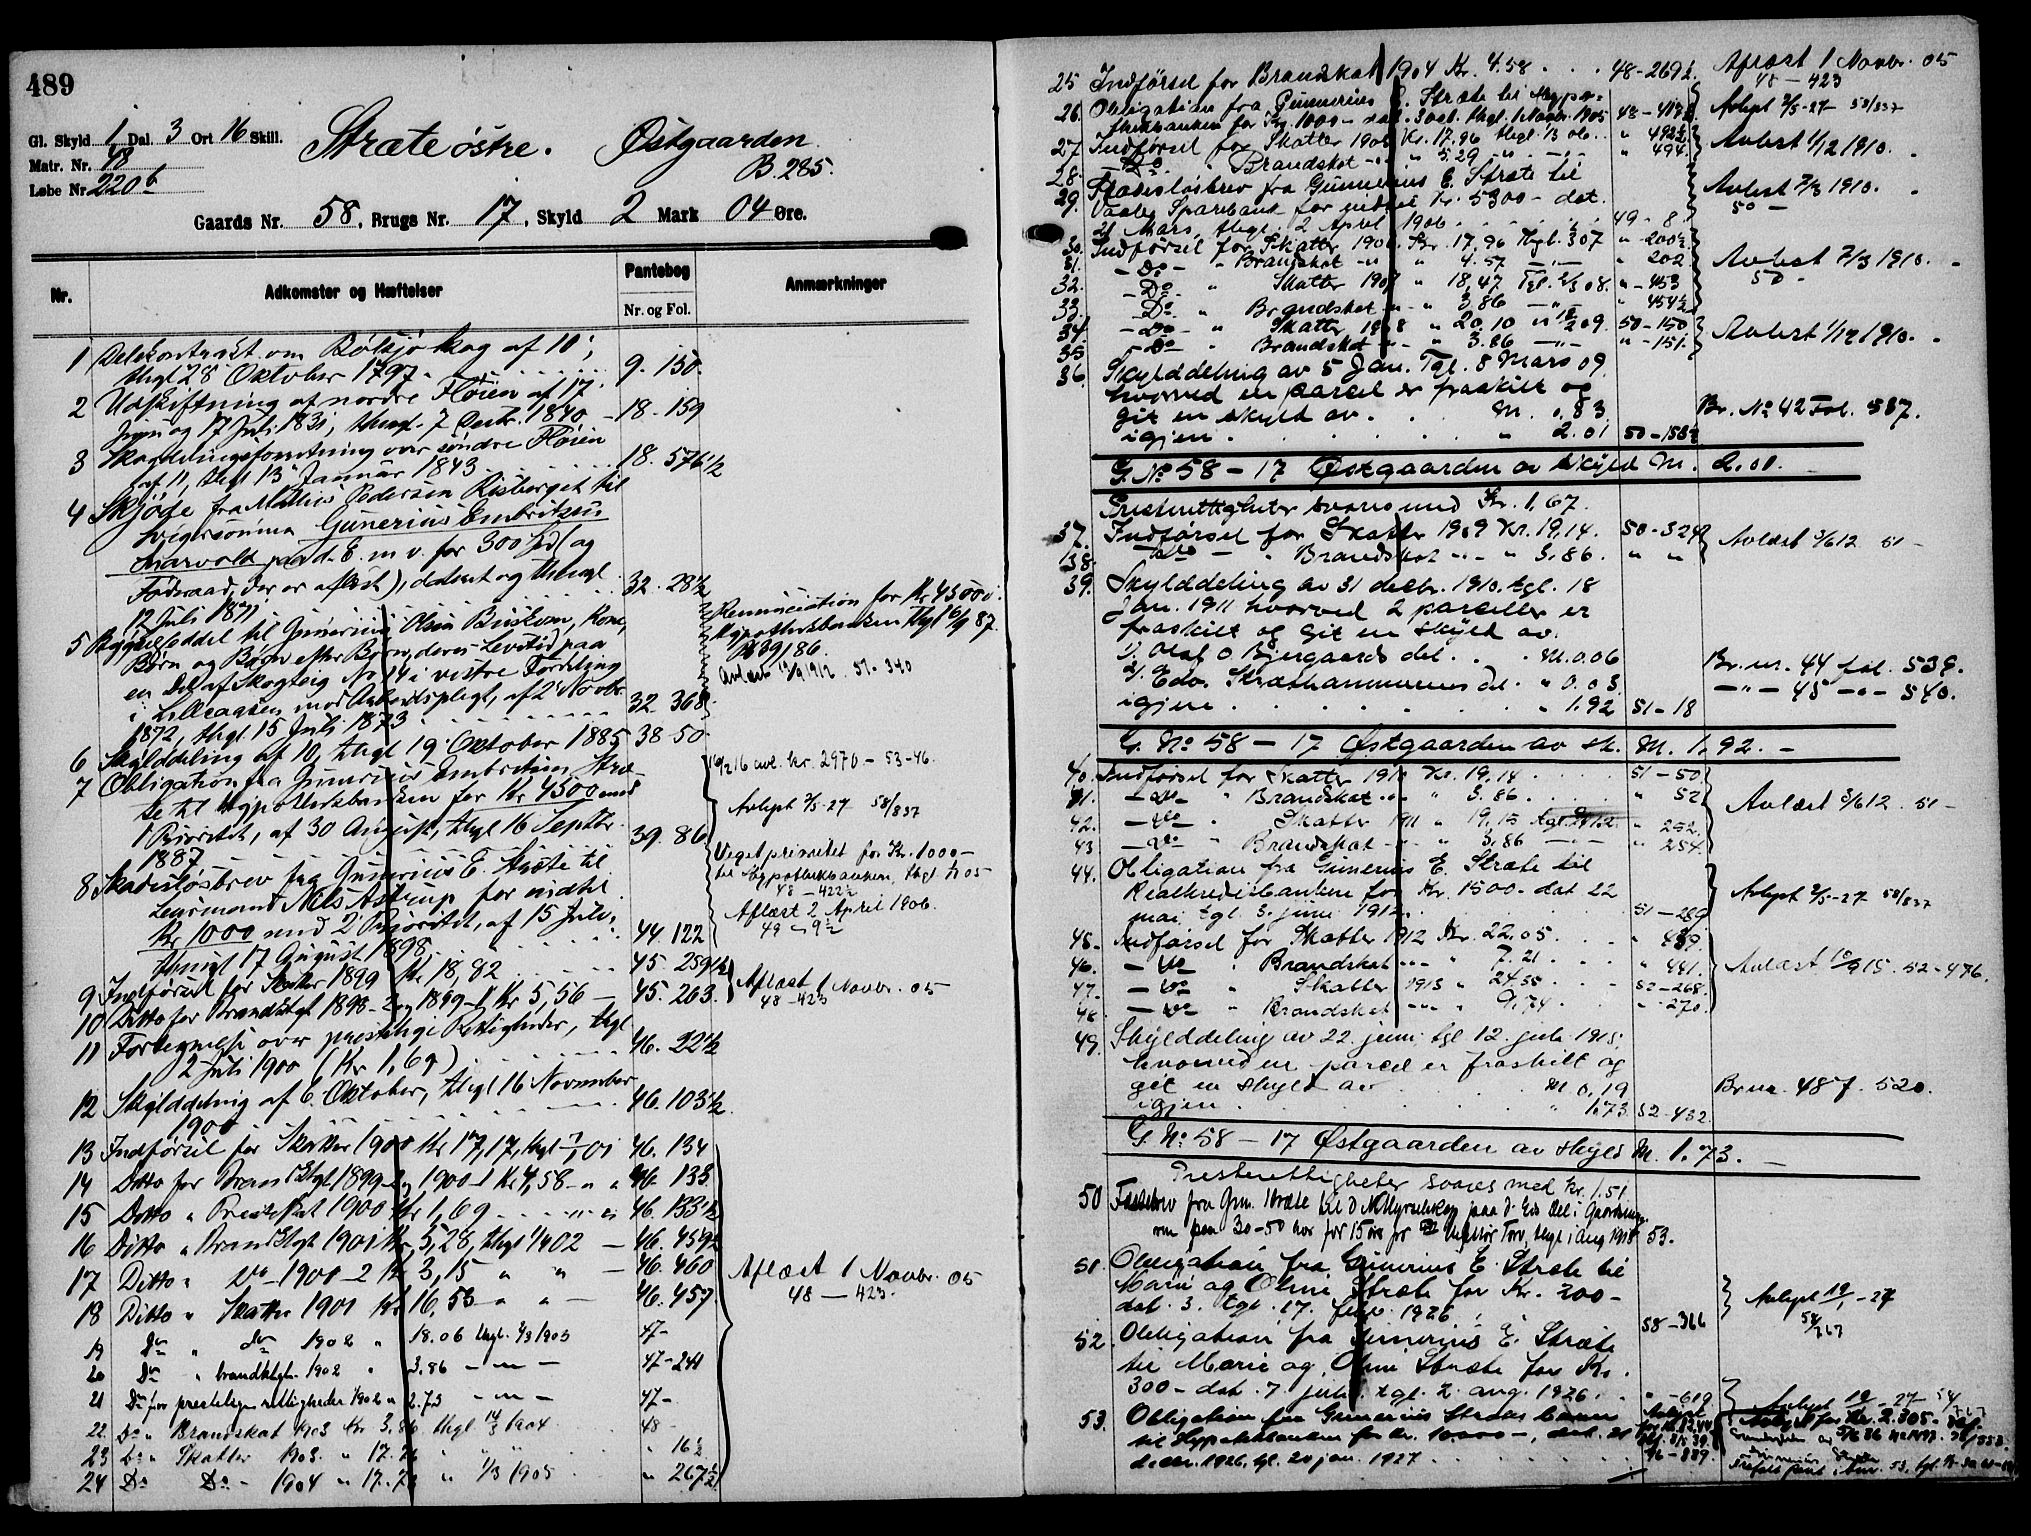 489
Gl. Skyld 1 Dal. 3 Ort 16 Skill.
Matr. Nr. 48
Løbe Nr. 220b
Stræte østre. Østgaarden
B. 285.
Gaards Nr. 58, Brugs Nr. 17, Skyld 2 Mark 04 Øre.
Nr. Adkomster og Hæftelser Pantebog Anmærkninger
Nr. og Fol.
1 Delekontrakt om Bølsjø skog af 10',
thgl 28 Oktober 1797. 9. 150
2 Udskiftning af nordre Fløien af 17
Juni og 17 Juli 1831, thingl. 7 Decbr. 1840 18. 159
3 Skogdelingsforretning over søndre Fløien
af 11, thgl 13 Januar 1843 18. 576 1/2
4 Skjøte fra Mathias Pedersen Risberget til
Svigersønnen Gunerius Embretsen
paa d. E. m. v. for 300 Spd (og
Føderaad, der er aflæst), dateret og thingl.
12 Juli 1871 32. 28 1/2
5 Bygselseddel til Gunerius Olsen, Kone,
Børn og Børn efter Børn, deres Levetid paa
en Del af Skogteig No 14 i vestre
i Lilleaasen mod Arbeidspligt, af 2 Novbr.
1872, thgl. 15 Juli 1873 32. 368
6 Skylddeling af 10, thgl 19 Oktober 1885 38. 50
7 Obligation fra Gunerius Embretsen Stræ-
te til Hypothekbanken for Kr 4500 med
1 Prioritet, af 30 August, thgl 16 Septbr.
1887 39. 86
8 Skadesløsbrev fra Gunerius E. Stræte til
Lensmand Nils Astrup for indtil
Kr 1000 med 2 Prioritet, af 15 Juli,
thingl 17 August 1898 44. 122
9 Indførsel for Skatter 1899 Kr 18,82 45. 259 1/2
10 Ditto for Brandktgt 1898-2 og 1899-1 Kr 5,56 45. 263
11 Fortegnelse over præstelige Rettigheder, thgl
2 Juli 1900 (Kr 1,69) 46. 22 1/2
12 Skylddeling af 6. Oktober, thgl 16 November
1900 46. 103 1/2
13 Indførsel for Skatter 1900 Kr 17,17, thgl 7/1 01 46. 134
14 Ditto for Brandktgt 1899-2 og 1900-1 Kr 4,58 " " 46. 133
15 Ditto " Presteskat 1900 Kr 1,69 " " 46. 133 1/2
16 Ditto " Brandktgt 1901 Kr 5,28, thgl 1/4 02 46. 459 1/2
17 Ditto " Do 1900-2 Kr 3,15 " " 46. 460
18 Ditto " Skatter 1901 Kr 16,53 " " 46. 457
19 Do " Do 1902 " 18.06 thgl. 1/3 1903 47-
20 Do " brandktgt 1902 " 3.86 - " - 47-241
21 Do for prestelige rettigheder 1902 " 2.73 - " - 47-
22 Do " Brandskat 1903 Kr 3.86 thgl 14/3 1904 48-
23 Do " Skatter 1903 " 17.26 " " " 16 1/2
24 Do Do 1904 " 17.73 " 1/3 1905 " 267 1/2
Renunciation for Kr 4500 i
Hypothekbanken thgl 16/9 87.
B 39/86.
Avlæst 1912 51-340
16/2 16 avl. kr. 2970 - 53-46.
Avlyst 2/5-27 58/837
Veget prioritet for Kr. 1000-
til Hypothekbanken, thgl. 1/11 05
48-422 1/2
Aflæst 2 April 1906.
49-9 1/2
Aflæst 1 Novbr. 05
48-423
Aflæst 1 Novbr. 05
48-423.
25 Indførsel for Brandskat 1904 Kr. 4.58 48-269 1/2 Aflæst 1 Novbr. 05
48-423
26. Obligation fra Gunnerius E. Stræte til Hypo-
thekbanken for Kr. 1000- dat. 30 okt. thgl. 1 Novbr. 1905 48-419 1/2 Avlyst 2/5-27 58/837
27 Indførsel for Skatter 1905 Kr. 17.96 thgl. 1/3 06. " 492 1/2 Avlæst 1/12 1910.
28. Do " Brandskat " " 5.29 " " 494
29. Skadesløsbrev fra Gunnerius E. Stræte til
Vaaler Sparebank for indtil Kr. 5300- dat.
21 Mars, thgl. 2 April 1906 49-8 Avlæst 7/3 1910.
50 -
30. Indførsel for Skatter 1906 Kr. 17.96 thgl. 307 " 200 1/2
31. - Do - " Brandskat " " 4.57 - " - " 202 Avlæst 7/3 1910.
50 -
32. - Do " Skatter 1907 " 18,47 Tgl. 2/3 08. " 453
33. - Do " Brandskat " " 3.86 - " - " 454 1/2
34. - Do - " Skatter 1908 " 20.10 " 18/2 09. 50-150 Avlæst 1/12 1910.
35 - Do - " Brandskat " " 3.86 - " - " 151
36 Skylddeling av 5 Jan. Tgl. 8 Mars 09
hvorved en parcel er fraskilt og
git en skyld av M. 0.83 Br. No 42 Fol. 537.
igjen " 2.01 50-158 1/2
G. No 58-17 Østgaarden av skyld M. 2.01.
Presterettigheter svares med Kr. 1,67.
37. Indførsel for Skatter 1909 Kr. 19,14. 50-324 Avlæst 3/6 12 51-
38 - Do - " Brandskat " " 3.86. " "
39. Skylddeling av 31 decbr. 1910. tgl. 18
Jan. 1911 hvorved 2 parseller er
fraskilt og git en skyld av:
1, Olaf O Bjergaards del M. 0.06 Br. nr. 44 fol. 539.
2, Edv. Stræthammerens del " 0.03. - " - 45 - " - 540.
igjen " 1.92 51-18
G. No 58-17 Østgaarden av sk. M. 1.92.-
40. Indførsel for Skatter 1910 Kr. 19.14 51-50
41. - Do - " Brandskat " " 3.86 " 52 Avlæst 3/6 12. 51-
42. - Do " Skatter 1911 " 19.15 " 252
43 - Do " Brandskat " " 3.86 " 254
44. Obligation fra Gunerius E. Stræte til
Realkreditbanken for Kr. 1500- dat 22
mai tgl. 3. juni 1912 51-289 Avlyst 2/5-27 58/837
45. Indførsel for Skatter 1912 Kr. 22.05 " 439
46. - Do " Brandskat " " 7.21 " 441. Avlæst 10/9 15. 52-476
47. - Do " Skatter 1913 " 24.55 52-268.
48. - Do " Brandskat " " 9.74 " 270
49. Skylddeling av 22. juni tgl 12. juli 1915,
hvorved en parcel er fraskilt og
git en skyld av M 0,19 Br nr. 48 f. 520.
igjen " 1.73 52-432
G. No 58-17 Østgaarden av skyld M. 1.73.-
Presterettigheter svares med Kr. 1.51
50 Festebrev fra Gun. Stræte til paa d. Eds del i
paa 30-50 aar for 15 øre pr. Torv, thgl. i Aug 1918 53.
51. Obligation fra Gunerius E. Stræte til
Marie og Oline Stræte for Kr. 200-
dat. 3. tgl. 17. febr. 1926. 58-366 Avlyst 19/1-27
58/767
52. Obligation fra Gunerius E. Stræte
til Marie og Oline Stræte for Kr.
300- dat. 7. juli, tgl. 2. aug. 1926. " -619 Avlyst 19/1-27 58/767
53. Obligation fra Gunerius Stræte
til Hypothekbanken for Kr. 10.000-, dat. 21
decbr. 1926. tgl. 20 jan. 1927 Avlyst for kr. 2.305.-